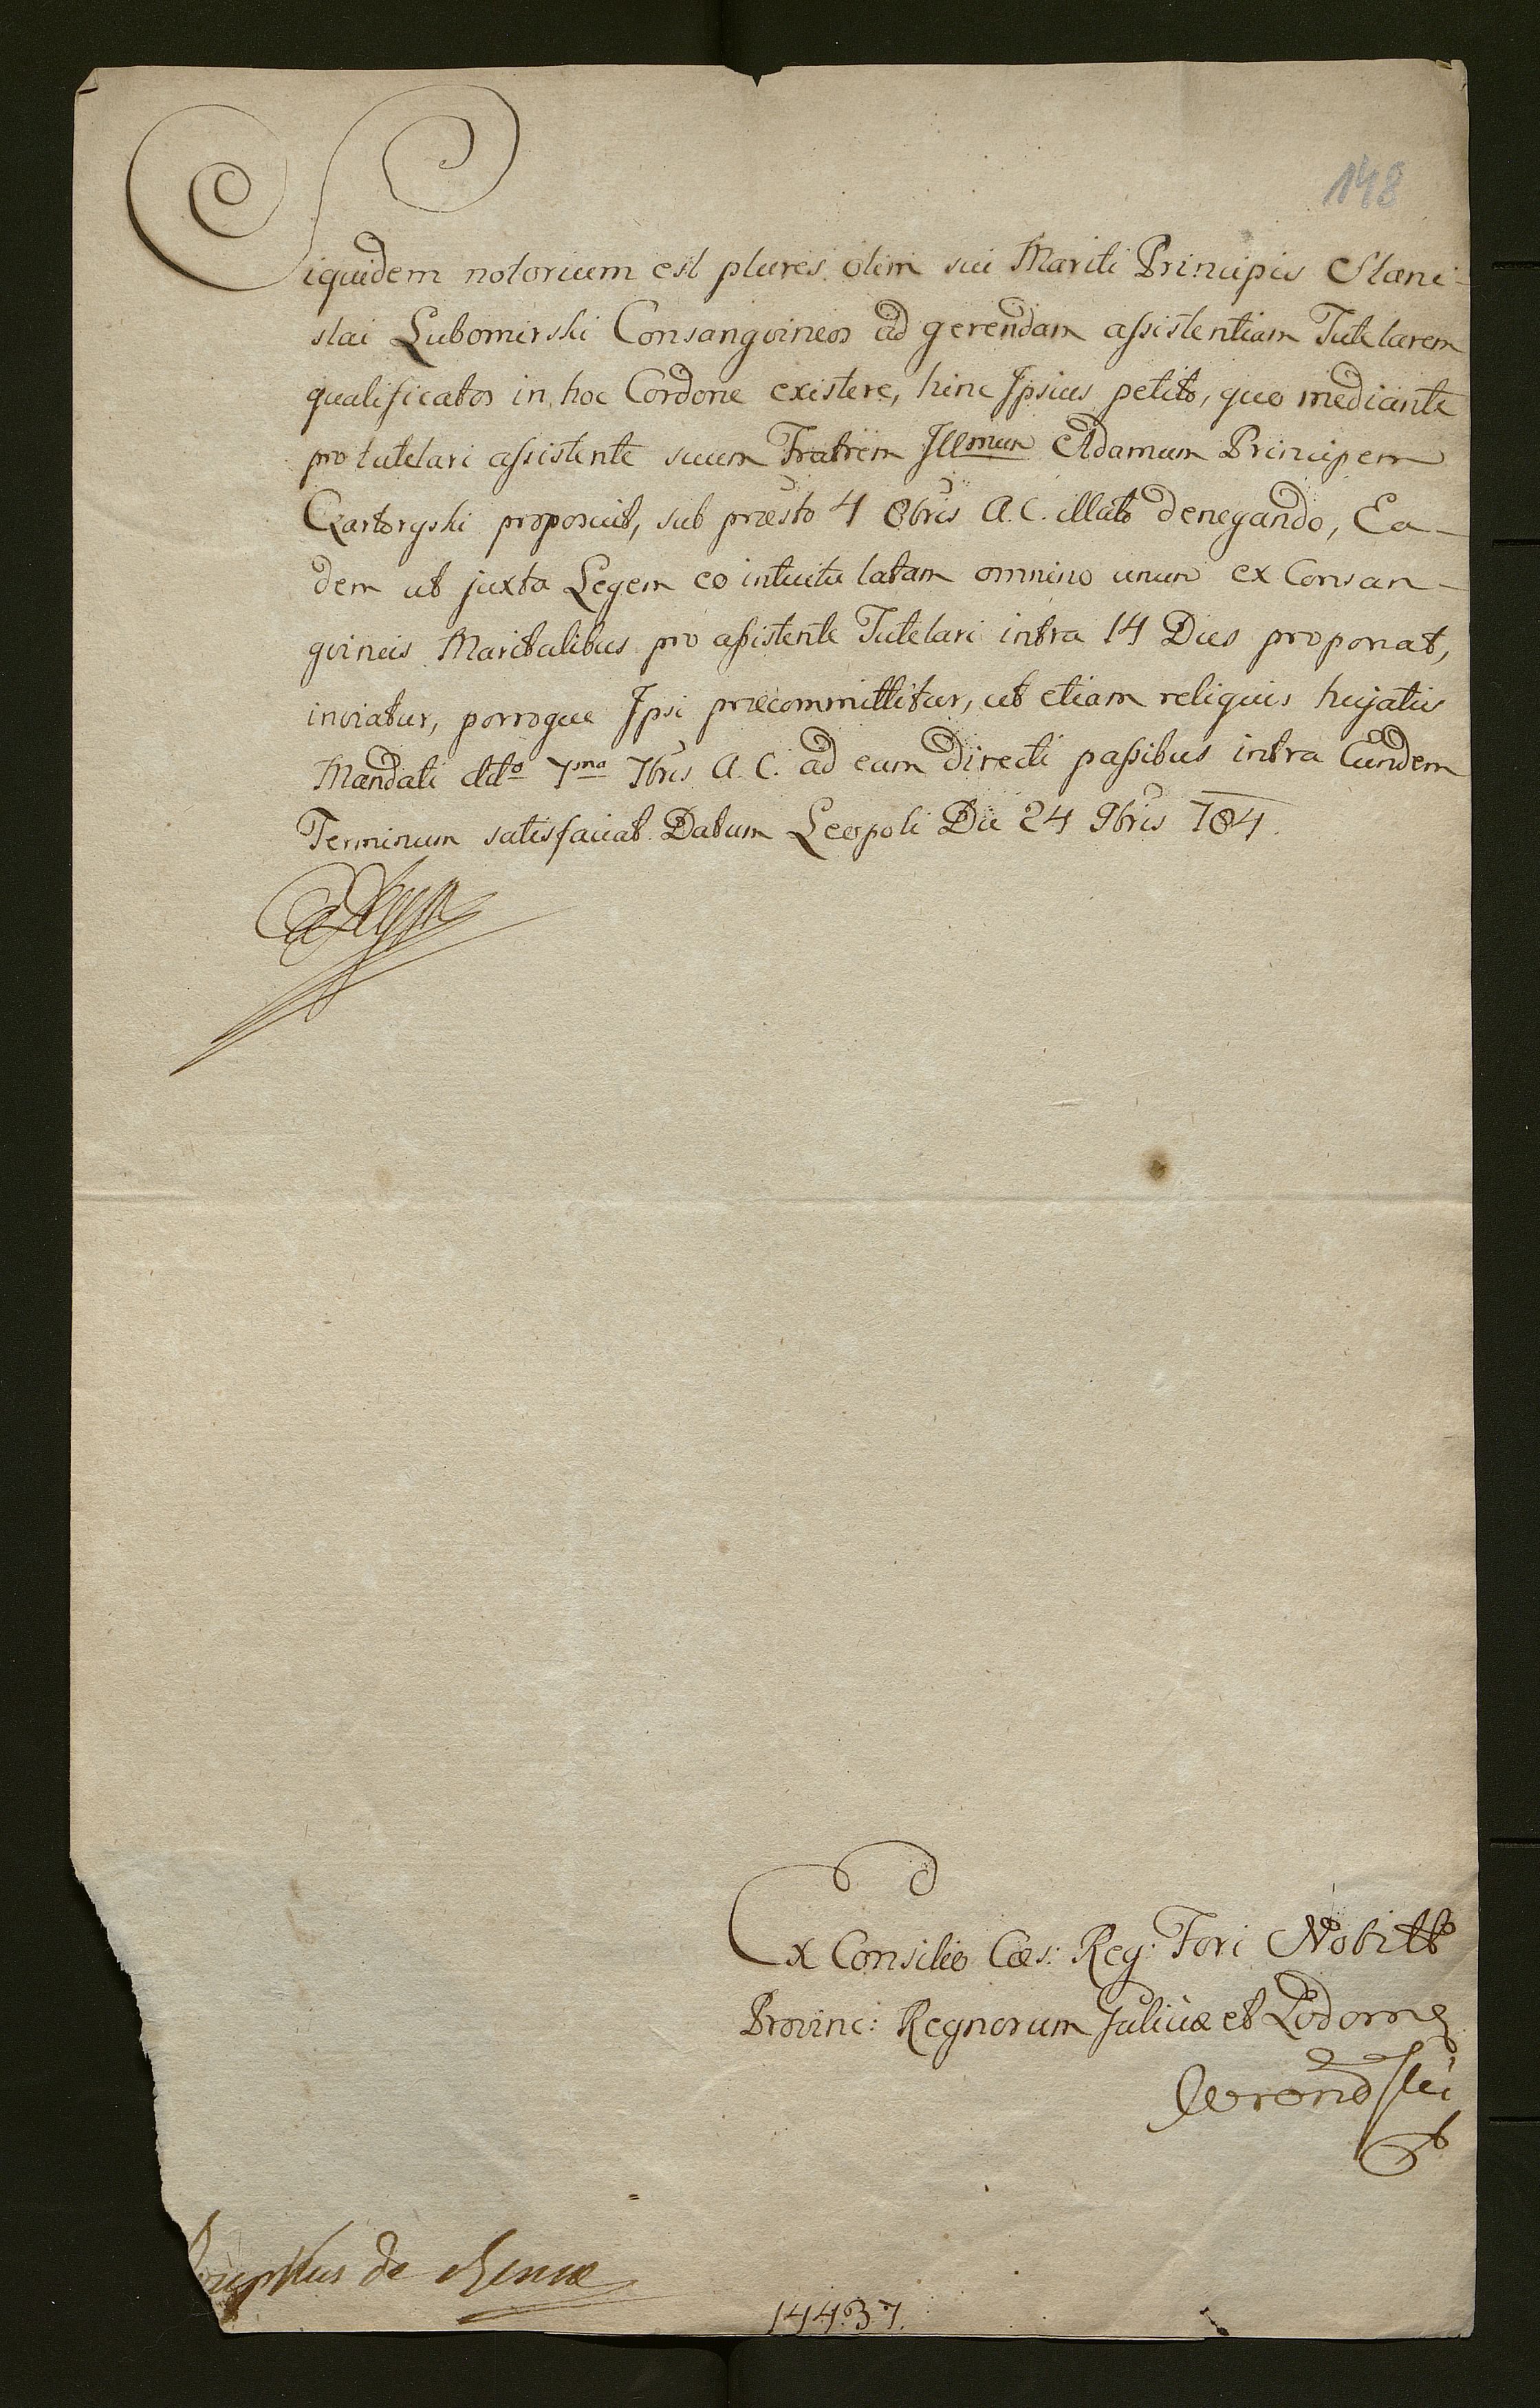 148
Siquidem notorium est plures olim sui Mariti Principis Stani-
slai Lubomirski Consangvineos ad gerendam assistentiam Tutelarem
qualificatos in hoc Cordone existere, hinc Ipsius petito, quo mediante
pro tutelari assistente suum Fratrem Illmum Adamum Principem
Czartoryski proposuit, sub præsto 4 8bris A. C. illato denegando, Ea-
dem ut juxta Legem eo intuitu latam omnino unum ex Consan-
gvineis Maritalibus pro assistente Tutelari intra 14 Dies proponat,
inviatur, porroque Ipsi præcommittitur, ut etiam reliquis hujatis
Mandati ddto 7ma 7bris A. C. ad eum directi passibus intra Eundem
Terminum satisfaciat. Datum Leopoli Die 24 9bris 784.
Ex Consilio Cæs: Reg: Fori Nobil
Provinc: Regnorum Galiciæ et Lodom
de
14437.